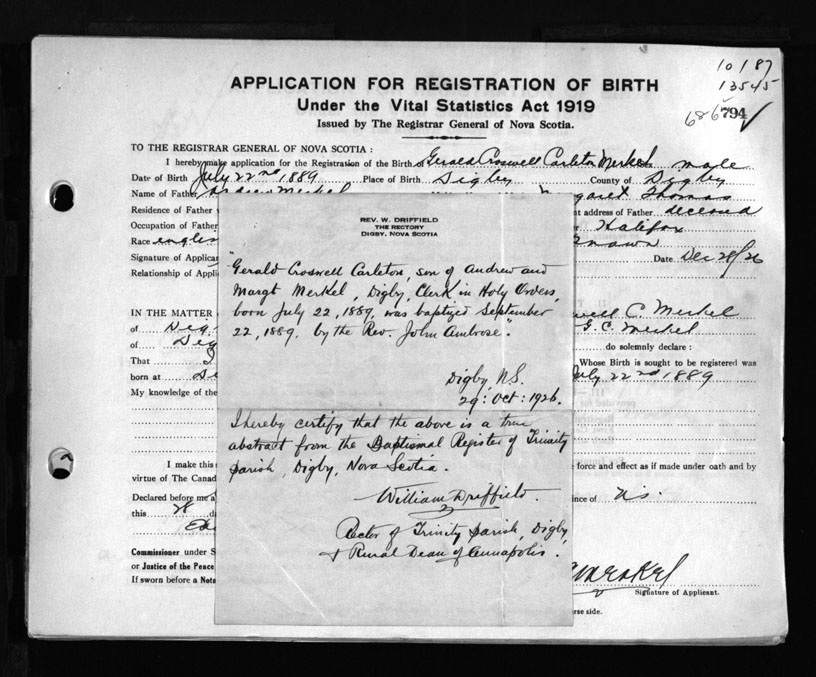 10/87
13545
APPLICATION FOR REGISTRATION OF BIRTH
Under the Vital Statistics Act 1919
686 794
Issued by The Registrar General of Nova Scotia.
TO THE REGISTRAR GENERAL OF NOVA SCOTIA:
I hereby make application for the Registration of the Birth of Gerald Croswell Carleton Merkel male
Date of Birth July 22nd 1889 Place of Birth Digby County of Digby
Name of Father Andrew Merkel Margaret Thomas
Residence of Father nt address of Father deceased
Occupation of Father Halifax
Race
Signature of Applican Date Dec 28/26
Relationship of Appli
REV. W. DRIFFIELD
THE RECTORY
DIGBY, NOVA SCOTIA
"Gerald Croswell Carleton, son of Andrew and
Margt Merkel, Digby, Clerk in Holy Orders,
born July 22, 1889, was baptized September
22, 1889, by the Rev. John Ambrose".
Digby, N.S.
29: Oct: 1926.
I hereby certify that the above is a true
abstract from the Baptismal Register of Trinity
Parish, Digby, Nova Scotia.
William Driffield.
Rector of Trinity Parish, Digby,
& Rural Dean of Annapolis.
IN THE MATTER well C. Merkel
of Dig G. C. Merkel
of Dig do solemnly declare:
That Whose Birth is sought to be registered was
born at July 22nd 1889
My knowledge of the
I make this force and effect as if made under oath and by
virtue of The Canad
Declared before me a nce of N.S.
this 28 d
Commissioner under S
or Justice of the Peace
If sworn before a Nota
Signature of Applicant.
rse side.